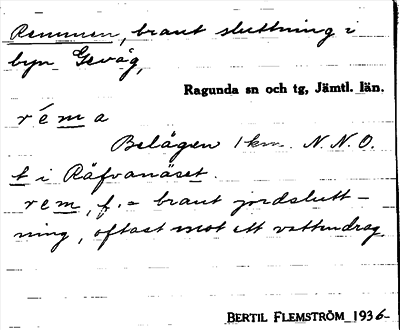 Remmen, brant sluttning i
byn Gevåg,
Ragunda sn och tg, Jämtl. län.
réma
Belägen 1 km. N.N.O.
t i Räfvanäset.
rem, f. = brant jordslutt-
ning, oftast mot ett vattendrag.
BERTIL FLEMSTRÖM 1936-